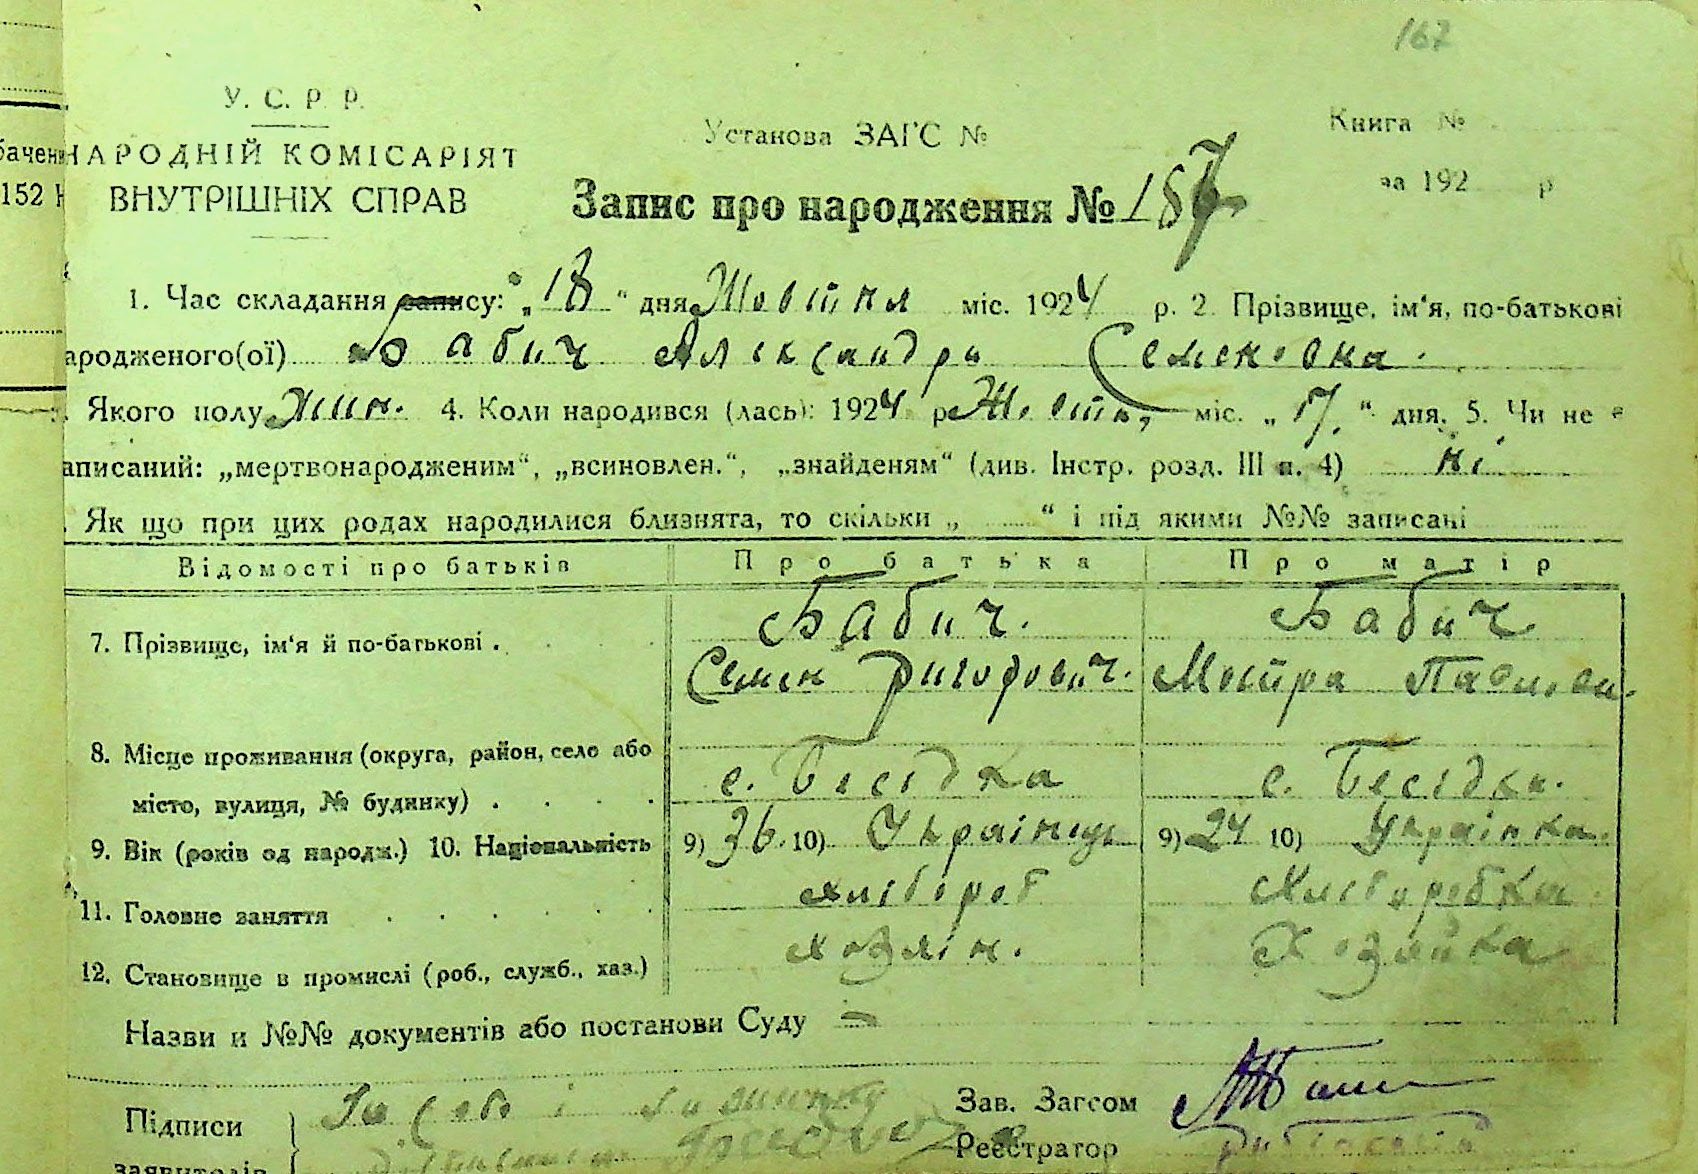 167
У. С. Р. Р.
НАРОДНІЙ КОМІСАРІЯТ
ВНУТРІШНІХ СПРАВ
Установа ЗАГС №
Книга №
за 192 р
бачен
152
Запис про народження № 187
1. Час складання запису: „18“ дня Жовтня міс. 1924 р. 2. Прізвище, ім‘я, по-батькові
ародженого(ої) Бабич Александра Семеновна.
Якого полу Жин. 4. Коли народився (лась): 1924 р Жовтн, міс. „17.“ дня. 5. Чи не є
аписаний: „мертвонародженим“, „всиновлен.“, „знайденям“ (див. Інстр. розд. III п. 4) ні
. Як що при цих родах народилися близнята, то скільки „ “ і під якими №№ записані
Відомості про батьків Про батька Про матір
7. Прізвище, ім‘я й по-батькові . Бабич. Бабич
Семен Мотря
8. Місце проживання (округа, район, село або
місто, вулиця, № будинку) . с. Бесідка с. Бесідка.
9. Вік (років од народж.) 10. Національність 9) 36. 10) Українець 9) 24 10) Українка.
11. Головне заняття хлібороб Хліборобка.
12. Становище в промислі (роб., служб., хаз.) хозяін. Хозяйка
Назви и №№ документів або постанови Суду —
Підписи За себе і
Зав. Загсом
заявителів
Реєстратор